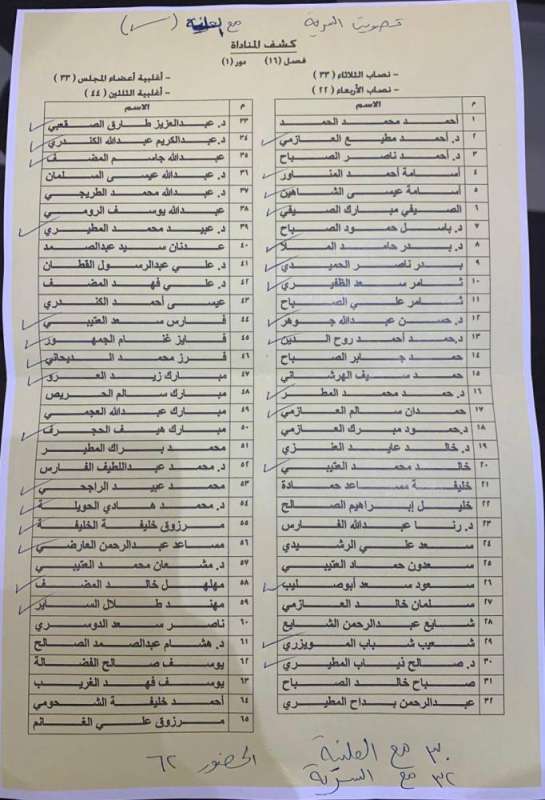 تصويت السرية مع العلنية
كشف المناداة
فصل (١٦) دور (١)
- نصاب الثلاثاء (٣٣)
- نصاب الأربعاء (٢٢)
- أغلبية أعضاء المجلس (٣٣)
- أغلبية الثلثين (٤٤)
م الاسم
١ أحمد محمد الحمد
٢ د. أحمد مطيع العازمي
٣ د. أحمد ناصر الصباح
٤ أسامة أحمد المناور
٥ أسامة عيسى الشاهين
٦ الصيفي مبارك الصيفي
٧ د. باسل حمود الصباح
٨ د. بدر حامد الملا
٩ بدر ناصر الحميدي
١٠ ثامر سعد الظفيري
١١ ثامر علي الصباح
١٢ د. حسن عبدالله جوهر
١٣ د. حمد أحمد روح الدين
١٤ حمد جابر الصباح
١٥ حمد سيف الهرشاني
١٦ د. حمد محمد المطر
١٧ حمدان سالم العازمي
١٨ د. حمود مبرك العازمي
١٩ د. خالد عايد العنزي
٢٠ خالد محمد العتيبي
٢١ خليفة مساعد حمادة
٢٢ خليل إبراهيم الصالح
٢٣ د. رنا عبدالله الفارس
٢٤ سعد علي الرشيدي
٢٥ سعدون حماد العتيبي
٢٦ سعود سعد أبوصليب
٢٧ سلمان خالد العازمي
٢٨ شايع عبدالرحمن الشايع
٢٩ شعيب شباب المويزري
٣٠ د. صالح ذياب المطيري
٣١ صباح خالد الصباح
٣٢ عبدالرحمن بداح المطيري
م الاسم
٣٣ د. عبدالعزيز طارق الصقعبي
٣٤ د. عبدالكريم عبدالله الكندري
٣٥ عبدالله جاسم المضف
٣٦ د. عبدالله عيسى السلمان
٣٧ د. عبدالله محمد الطريجي
٣٨ عبدالله يوسف الرومي
٣٩ د. عبيد محمد المطيري
٤٠ عدنان سيد عبدالصمد
٤١ د. علي عبدالرسول القطان
٤٢ د. علي فهد المضف
٤٣ عيسى أحمد الكندري
٤٤ فارس سعد العتيبي
٤٥ فايز غنام الجمهور
٤٦ فرز محمد الديحاني
٤٧ مبارك زيد العرو
٤٨ مبارك سالم الحريص
٤٩ مبارك عبدالله العجمي
٥٠ مبارك هيف الحجرف
٥١ محمد براك المطير
٥٢ د. محمد عبداللطيف الفارس
٥٣ محمد عبيد الراجحي
٥٤ د. محمد هادي الحويلة
٥٥ مرزوق خليفة الخليفة
٥٦ مساعد عبدالرحمن العارضي
٥٧ د. مشعان محمد العتيبي
٥٨ مهلهل خالد المضف
٥٩ مهند طلال الساير
٦٠ ناصر سعد الدوسري
٦١ د. هشام عبدالصمد الصالح
٦٢ يوسف صالح الفضالة
٦٣ يوسف فهد الغريب
٦٤ أحمد خليفة الشحومي
٦٥ مرزوق علي الغانم
٣٠ مع العلنية
٣٢ مع السرية
الحضور ٦٢